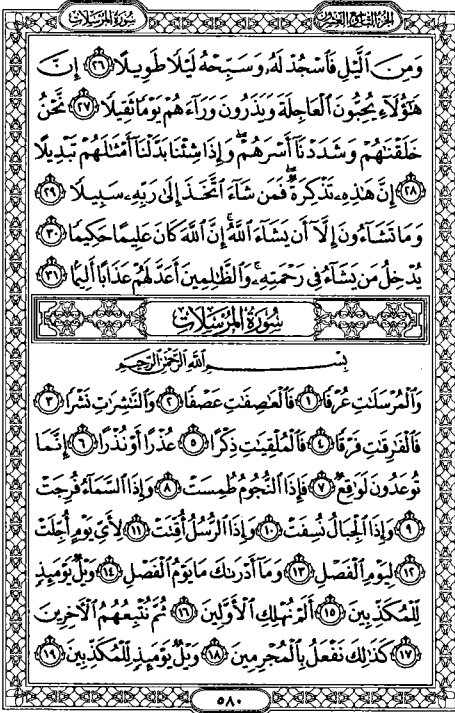 الجزء التاسع والعشرون
سورة المرسلات
وَمِنَ ٱلَّيۡلِ فَٱسۡجُدۡ لَهُۥ وَسَبِّحۡهُ لَيۡلٗا طَوِيلًا ٢٦ إِنَّ
هَٰٓؤُلَآءِ يُحِبُّونَ ٱلۡعَاجِلَةَ وَيَذَرُونَ وَرَآءَهُمۡ يَوۡمٗا ثَقِيلٗا ٢٧ نَّحۡنُ
خَلَقۡنَٰهُمۡ وَشَدَدۡنَآ أَسۡرَهُمۡۖ وَإِذَا شِئۡنَا بَدَّلۡنَآ أَمۡثَٰلَهُمۡ تَبۡدِيلًا
٢٨ إِنَّ هَٰذِهِۦ تَذۡكِرَةٞۖ فَمَن شَآءَ ٱتَّخَذَ إِلَىٰ رَبِّهِۦ سَبِيلٗا ٢٩
وَمَا تَشَآءُونَ إِلَّآ أَن يَشَآءَ ٱللَّهُۚ إِنَّ ٱللَّهَ كَانَ عَلِيمًا حَكِيمٗا ٣٠
يُدۡخِلُ مَن يَشَآءُ فِي رَحۡمَتِهِۦۚ وَٱلظَّٰلِمِينَ أَعَدَّ لَهُمۡ عَذَابًا أَلِيمَۢا ٣١
سُورَةُ المُرۡسَلَاتِ
بِسۡمِ ٱللَّهِ ٱلرَّحۡمَٰنِ ٱلرَّحِيمِ
وَٱلۡمُرۡسَلَٰتِ عُرۡفٗا ١ فَٱلۡعَٰصِفَٰتِ عَصۡفٗا ٢ وَٱلنَّٰشِرَٰتِ نَشۡرٗا ٣
فَٱلۡفَٰرِقَٰتِ فَرۡقٗا ٤ فَٱلۡمُلۡقِيَٰتِ ذِكۡرًا ٥ عُذۡرًا أَوۡ نُذۡرًا ٦ إِنَّمَا
تُوعَدُونَ لَوَٰقِعٞ ٧ فَإِذَا ٱلنُّجُومُ طُمِسَتۡ ٨ وَإِذَا ٱلسَّمَآءُ فُرِجَتۡ
٩ وَإِذَا ٱلۡجِبَالُ نُسِفَتۡ ١٠ وَإِذَا ٱلرُّسُلُ أُقِّتَتۡ ١١ لِأَيِّ يَوۡمٍ أُجِّلَتۡ
١٢ لِيَوۡمِ ٱلۡفَصۡلِ ١٣ وَمَآ أَدۡرَىٰكَ مَا يَوۡمُ ٱلۡفَصۡلِ ١٤ وَيۡلٞ يَوۡمَئِذٖ
لِّلۡمُكَذِّبِينَ ١٥ أَلَمۡ نُهۡلِكِ ٱلۡأَوَّلِينَ ١٦ ثُمَّ نُتۡبِعُهُمُ ٱلۡأٓخِرِينَ
١٧ كَذَٰلِكَ نَفۡعَلُ بِٱلۡمُجۡرِمِينَ ١٨ وَيۡلٞ يَوۡمَئِذٖ لِّلۡمُكَذِّبِينَ ١٩
٥٨٠